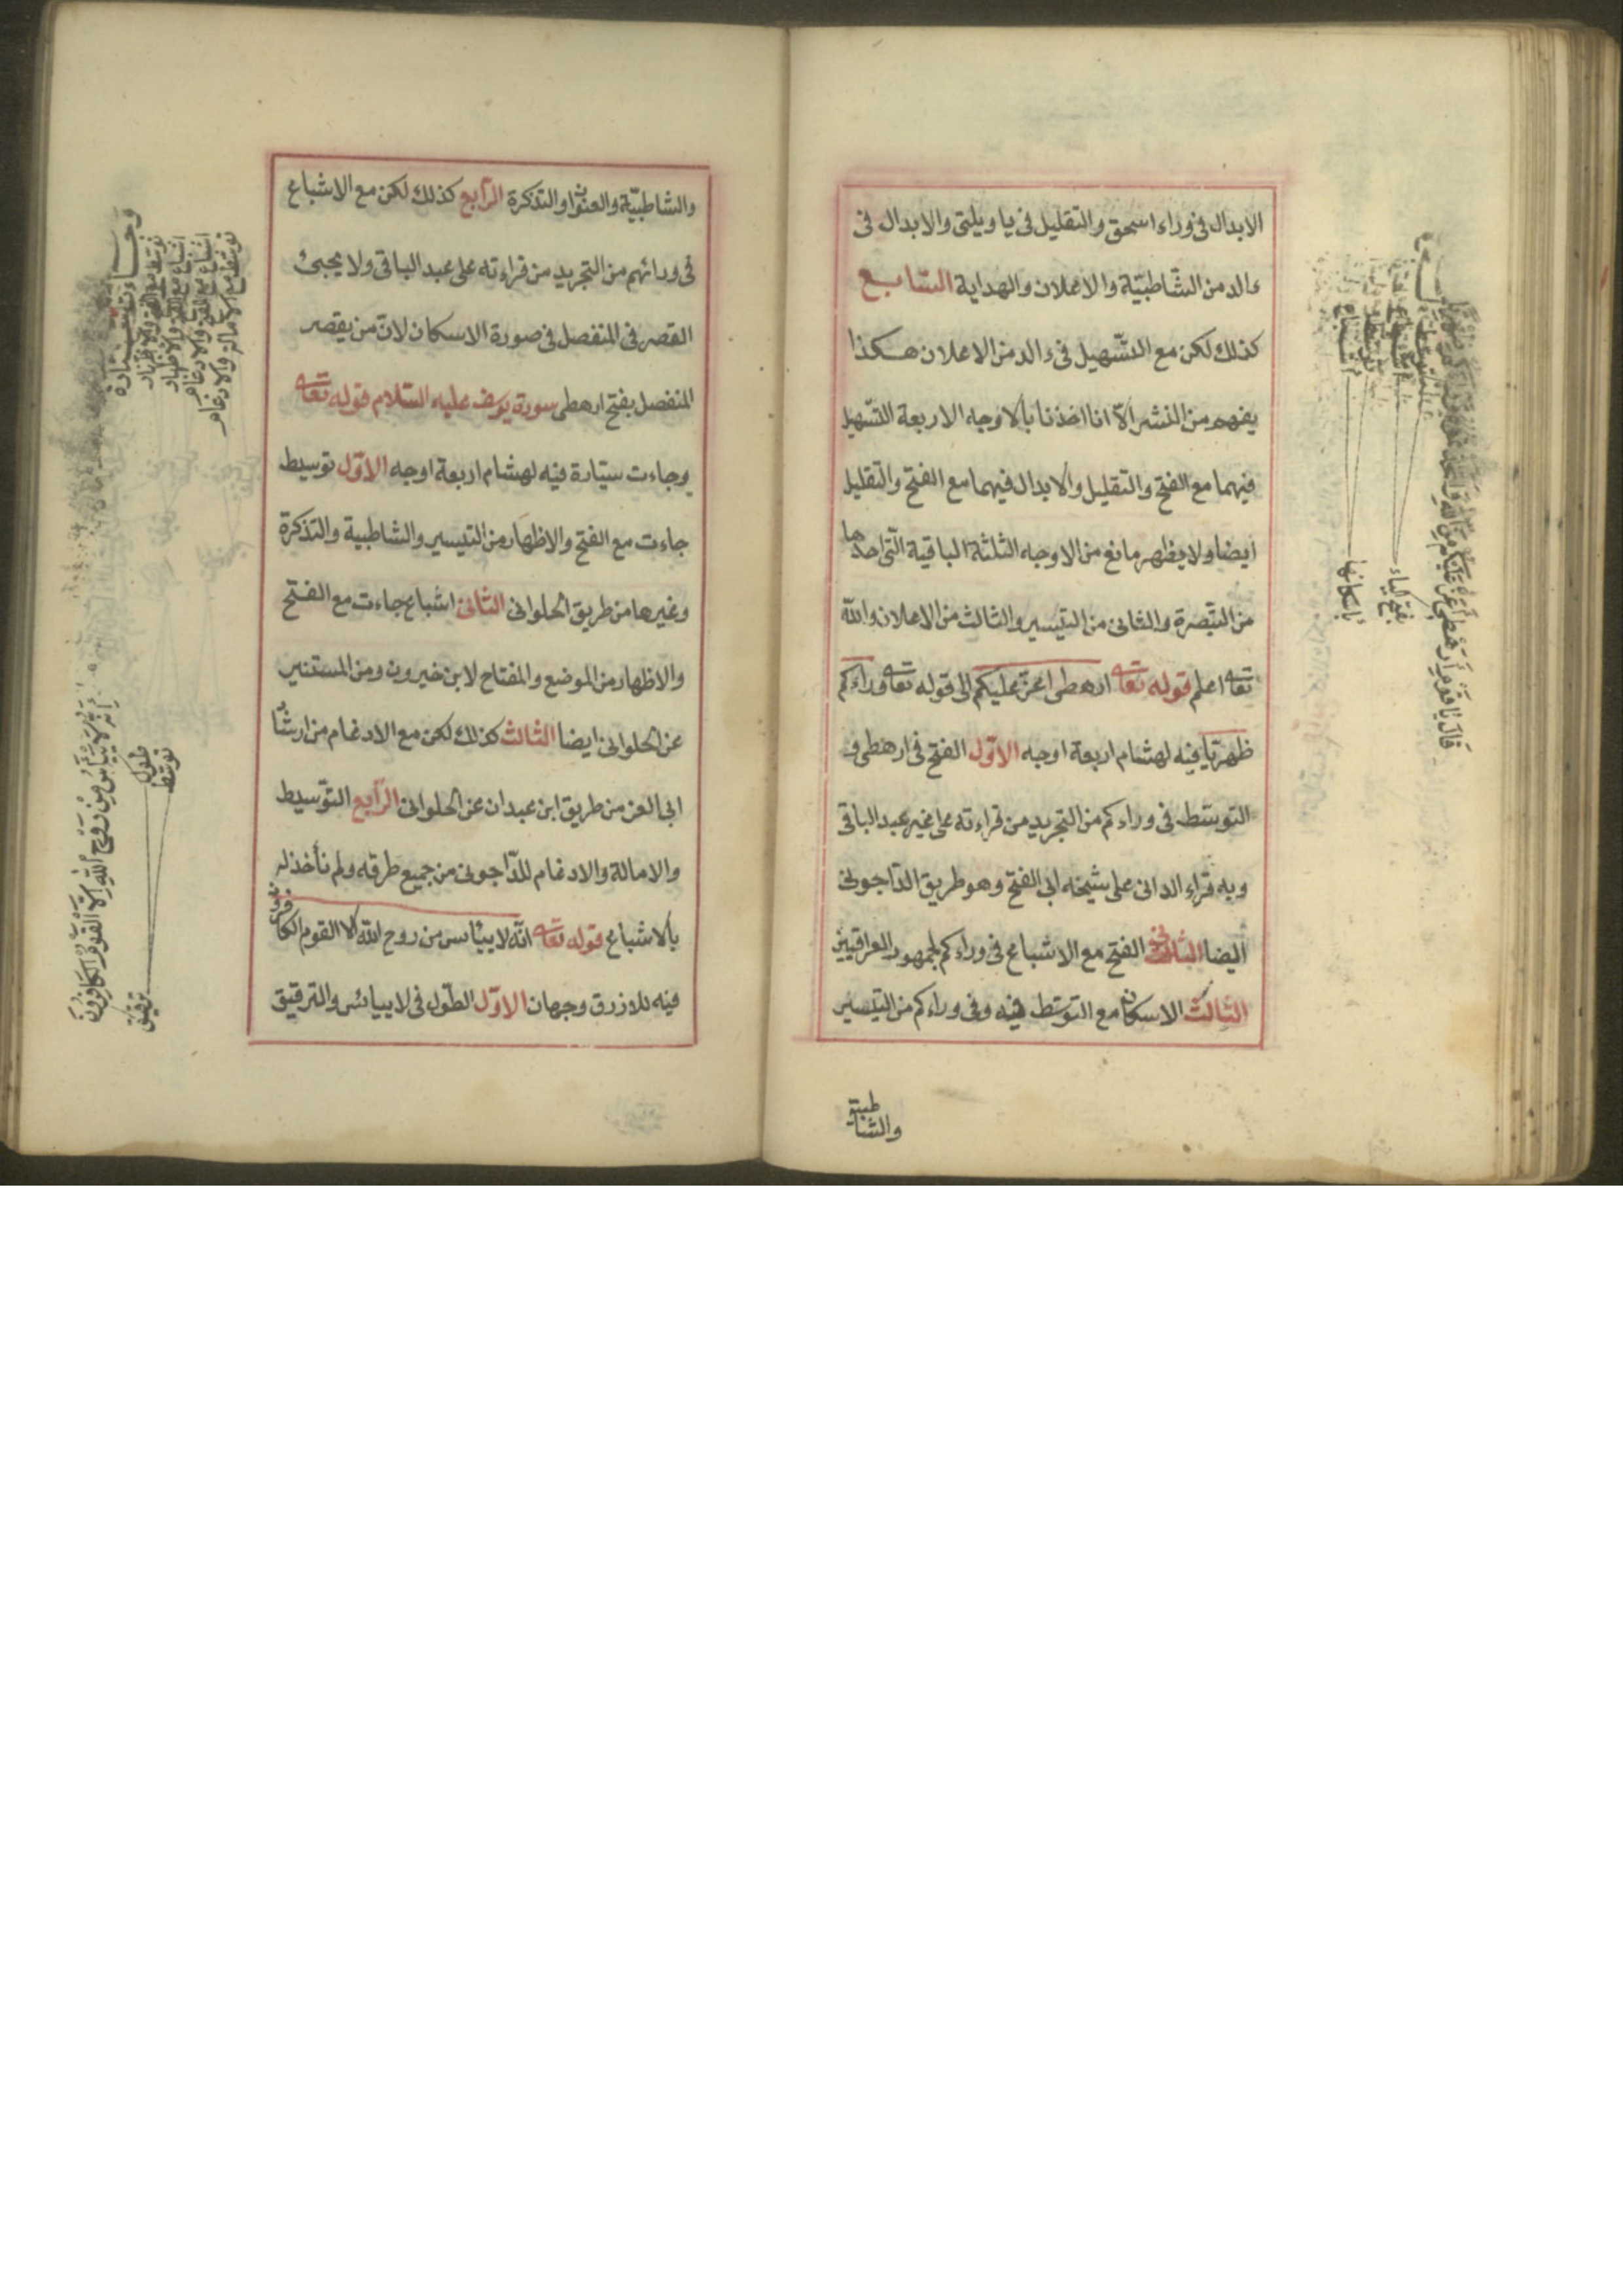 الابدال فى وراء اسحق والتقليل فى يا ويلتى والابدال فى
ءالد من الشاطبيّة والاعلان والهداية السّابع
كذلك لكن مع التسّهيل فى ءالد من الاعلان هكذا
يفهم من النشر الّا انا اخذنا بالاوجه الاربعة التسّهيل
فيهما مع الفتح والتقليل والابدال فيهما مع الفتح والتقليل
ايضا ولا يظهر مانع من الاوجه الثلثة الباقية الّتى احدها
من التبّصرة والثانى من التيسير والثالث من الاعلان والله
تعا اعلم قوله تعا ارهطى اعزّ عليكم الى قوله تعا وراءكم
ظهريّا فيه لهشام اربعة اوجه الاوّل الفتح فى ارهطى و
التوسّط فى وراءكم من التجريد من قراءته على غير عبد الباقى
وبه قراء الدانى على شيخه ابى الفتح وهو طريق الدّاجونى
ايضا الثانى الفتح مع الاشباع فى وراءكم لجمهور العراقيين
الثالث الاسكان مع التوسّط فيه وفى وراءكم من التيسير
والشاطبية
قال يا قوم ارهطى اعز عليكم من الله
بفتح الياء
باسكانها
والشاطبيّة والعنوان والتذكرة الرّابع كذلك لكن مع الاشباع
فى ورائهم من التجريد من قراءته على عبد الباقى ولا يجئ
القصر فى المنفصل فى صورة الاسكان لانّ من يقصر
المنفصل يفتح ارهطى سورة يوسف عليه السّلام قوله تعا
وجاءت سيّارة فيه لهشام اربعة اوجه الاوّل توسيط
جاءت مع الفتح والاظهار من التيسير والشاطبية والتذكرة
وغيرها من طريق الحلوانى الثانى اشباع جاءت مع الفتح
والاظهار من الموضع والمفتاح لابن خيرون ومن المستنير
عن الحلوانى ايضا الثالث كذلك لكن مع الادغام من ارشاد
ابى العز من طريق ابن عبدان عن الحلوانى الرّابع التوّسيط
والامالة والادغام للدّاجونى من جميع طرقه ولم نأخذ له
بالاشباع قوله تعا انّه لا ييأس من روح الله الا القوم الكافرون
فيه للازرق وجهان الاوّل الطّول فى لا ييائس والترقيق
وجاءت سيارة
توسّط مع الفتح والاظهار
اشباع مع الفتح والاظهار
اشباع مع الفتح والادغام
توسّط مع الامالة والادغام
انه لا ييأس من روح الله الا القوم الكافرون
طول
توسّط
ترقيق